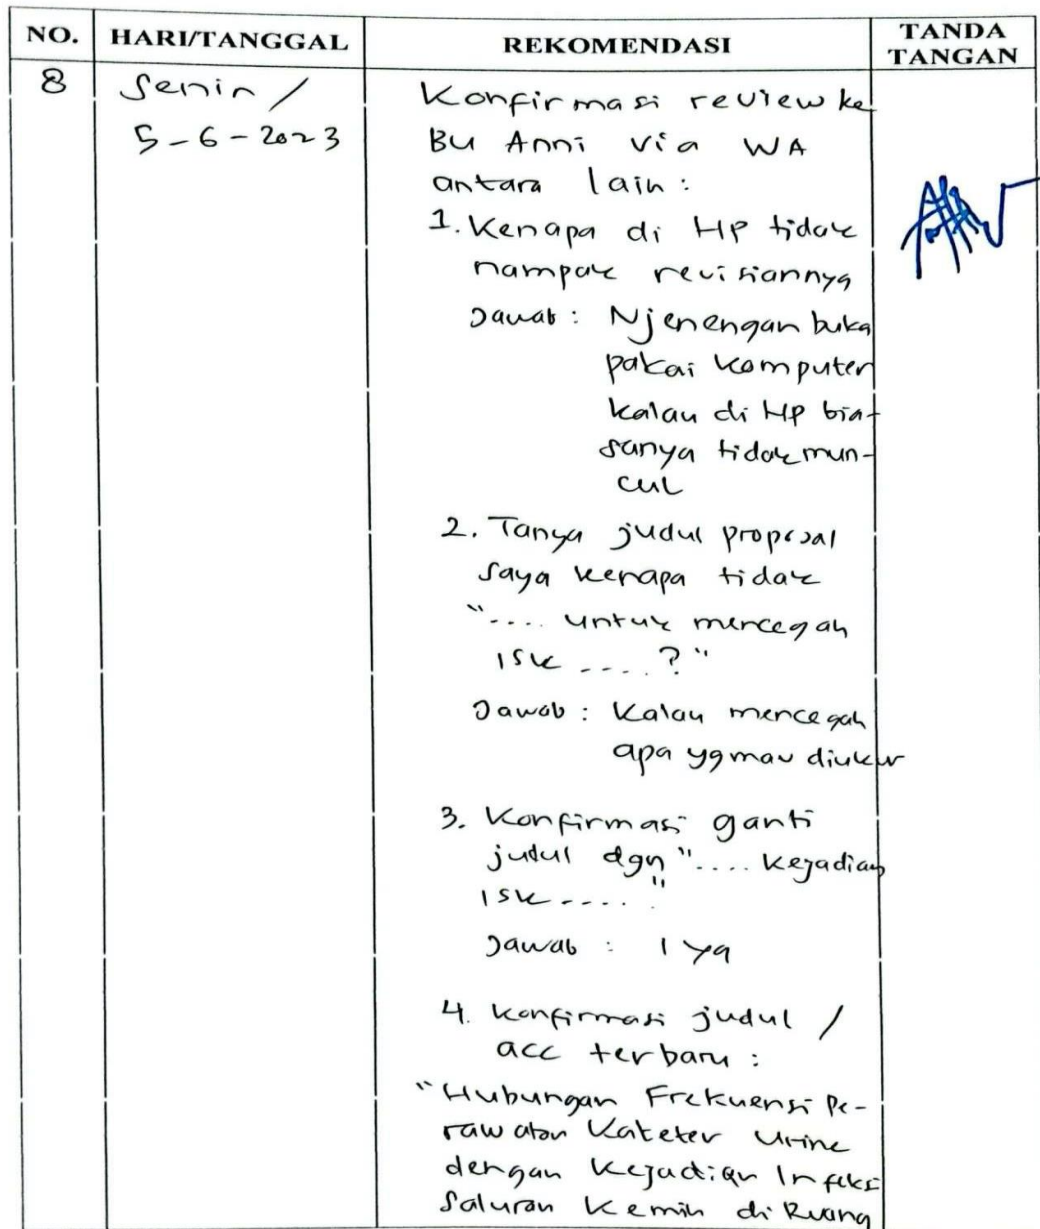 NO. HARI/TANGGAL REKOMENDASI TANDA TANGAN
8 Senin / Konfirmasi review ke
5-6-2023 Bu Anni via WA
antara lain :
1. Kenapa di HP tidak
nampak revisiannya
Jawab : Njenengan buka
pakai komputer
kalau di HP bia-
sanya tidak mun-
cul
2. Tanya judul proposal
saya kenapa tidak
".... untuk mencegah
ISK ....?"
Jawab : Kalau mencegah
apa yg mau diukur
3. Konfirmasi ganti
judul dgn ".... kejadian
ISK ....."
Jawab : Iya
4. Konfirmasi judul /
acc terbaru :
"Hubungan Frekuensi Pe-
rawatan Kateter Urine
dengan Kejadian Infeksi
Saluran Kemih di Ruang